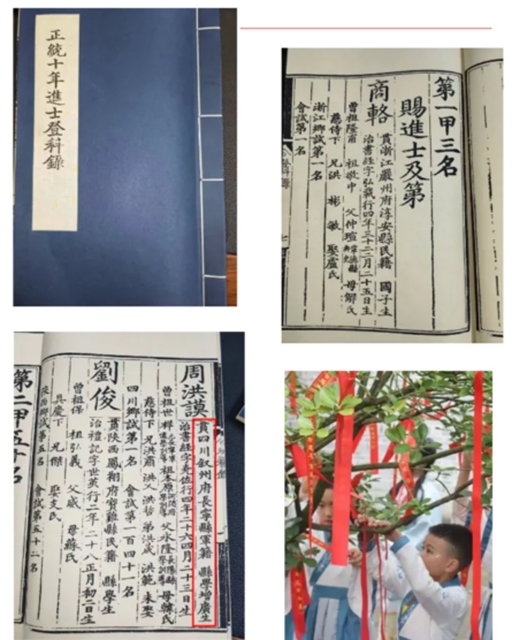 正統十年進士登科錄
第一甲三名
賜進士及第
商輅
貫浙江嚴州府淳安縣民籍 國子生
治書經字弘載行四年三十二二月二十五日生
曾祖隆甫 祖敬中 父仲瑄 母解氏
慈侍下 兄洪 彬 敏 娶盧氏
浙江鄉試第一名
會試第一名
周洪謨
貫四川叙州府長寧縣軍籍 縣學增廣生
治書經字堯佐行四年二十六四月二十三日生
曾祖世祥 祖本源 父永隆 母韓氏
慈侍下 兄洪肅 洪哲 弟洪 洪範 未娶
四川鄉試第一名 會試第一百四十一名
劉俊
貫陝西鳳翔府寶雞縣民籍 縣學生
治禮記字世英行二年二十八正月初二日生
曾祖保 祖弘義 父威 母蘇氏
具慶下 兄傑 娶支氏
陝西鄉試第五名 會試第五十二名
第二甲五十名